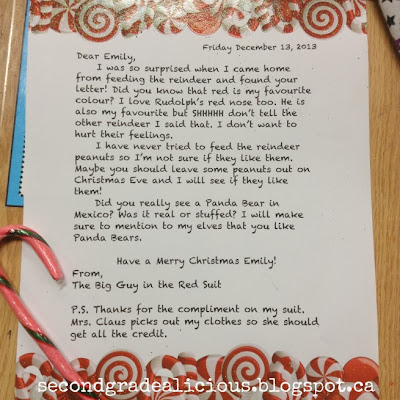 Friday December 13, 2013
Dear Emily,
I was so surprised when I came home
from feeding the reindeer and found your
letter! Did you know that red is my favourite
colour? I love Rudolph's red nose too. He is
also my favourite but SHHHHH don't tell the
other reindeer I said that. I don't want to
hurt their feelings.
I have never tried to feed the reindeer
peanuts so I'm not sure if they like them.
Maybe you should leave some peanuts out on
Christmas Eve and I will see if they like
them!
Did you really see a Panda Bear in
Mexico? Was it real or stuffed? I will make
sure to mention to my elves that you like
Panda Bears.
Have a Merry Christmas Emily!
From,
The Big Guy in the Red Suit
P.S. Thanks for the compliment on my suit.
Mrs. Claus picks out my clothes so she should
get all the credit.
secondgradealicious.blogspot.ca